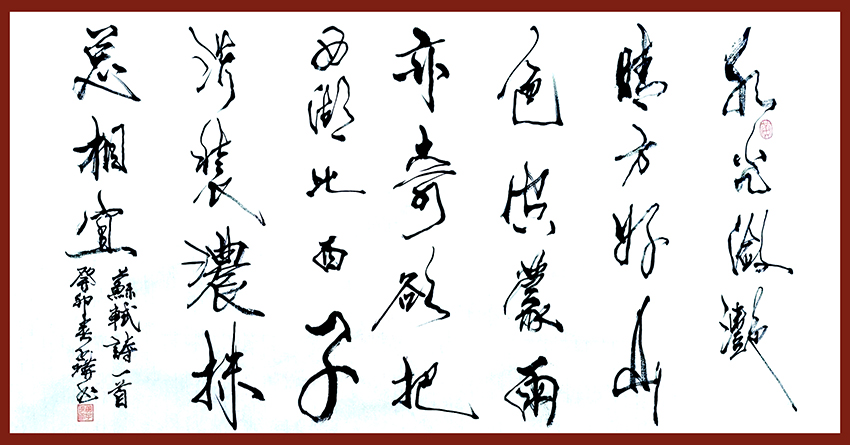 水光潋灔
晴方好山
色涳蒙雨
亦奇欲把
西湖比西子
淡裝濃抹
总相宜
蘇軾詩一首
癸卯春